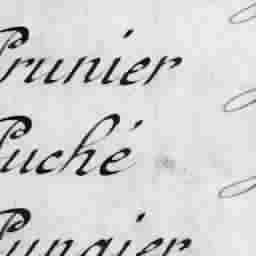 Prunier
Puché
Pungier